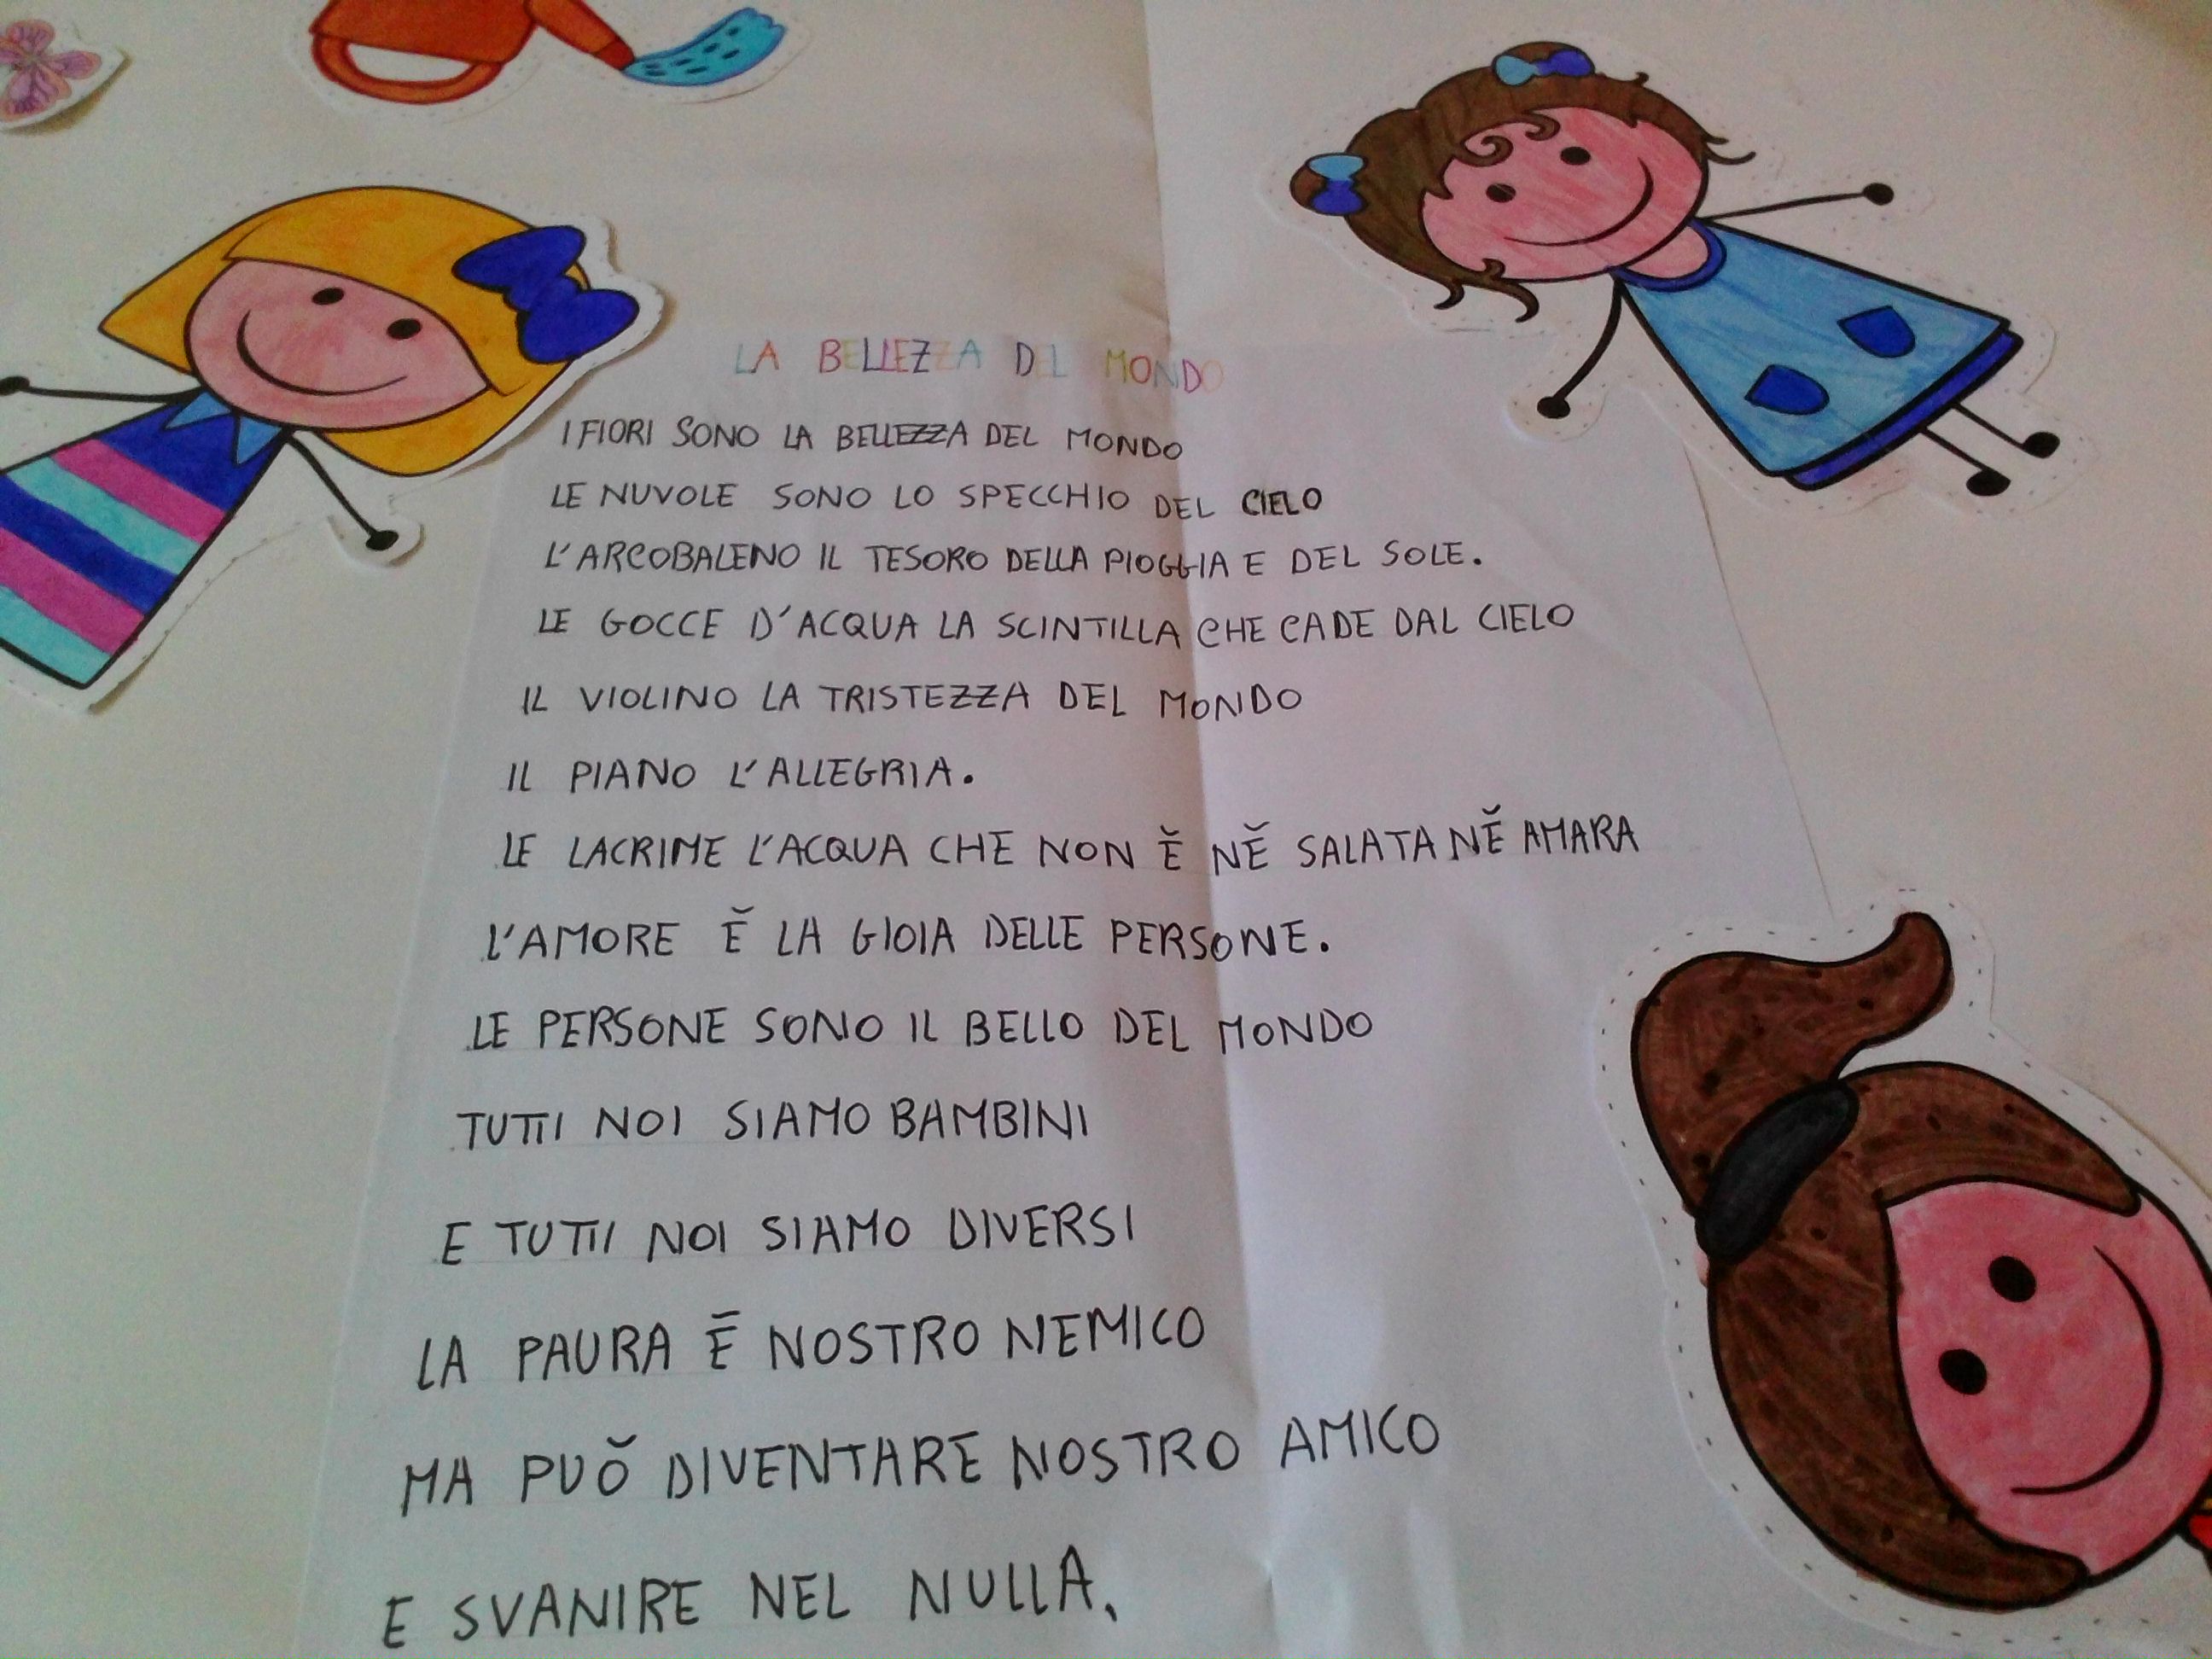 LA BELLEZZA DEL MONDO
I FIORI SONO LA BELLEZZA DEL MONDO
LE NUVOLE SONO LO SPECCHIO DEL CIELO
L'ARCOBALENO IL TESORO DELLA PIOGGIA E DEL SOLE.
LE GOCCE D'ACQUA LA SCINTILLA CHE CADE DAL CIELO
IL VIOLINO LA TRISTEZZA DEL MONDO
IL PIANO L'ALLEGRIA.
LE LACRIME L'ACQUA CHE NON Ĕ NĔ SALATA NĔ AMARA
L'AMORE Ĕ LA GIOIA DELLE PERSONE.
LE PERSONE SONO IL BELLO DEL MONDO
TUTTI NOI SIAMO BAMBINI
E TUTTI NOI SIAMO DIVERSI
LA PAURA Ē NOSTRO NEMICO
MA PUŎ DIVENTARE NOSTRO AMICO
E SVANIRE NEL NULLA.